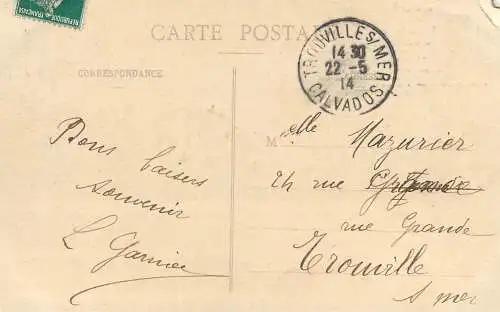 REPUBLIQUE FRANÇAISE
CARTE POSTALE
TROUVILLE S/MER
14 30
22 - 5
14
CALVADOS
CORRESPONDANCE
Bons baisers
souvenir
L Garnier
Melle Mazurier
24 rue
rue Grande
Trouville
s mer